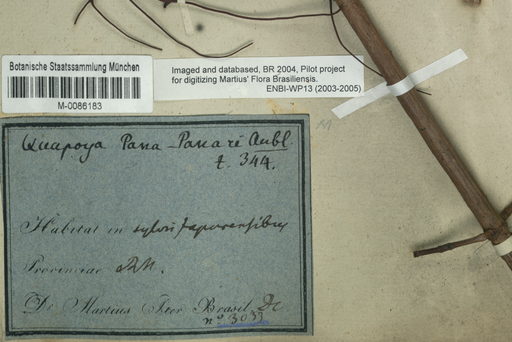 Botanische Staatssammlung München
M-0086183
Imaged and databased, BR 2004, Pilot project
for digitizing Martius' Flora Brasiliensis.
ENBI-WP13 (2003-2005)
Quapoya Pana-Panari Aubl.
t. 344.
Habitat in
Provinciae
Dr. Martius Iter Brasil.
nº 3033